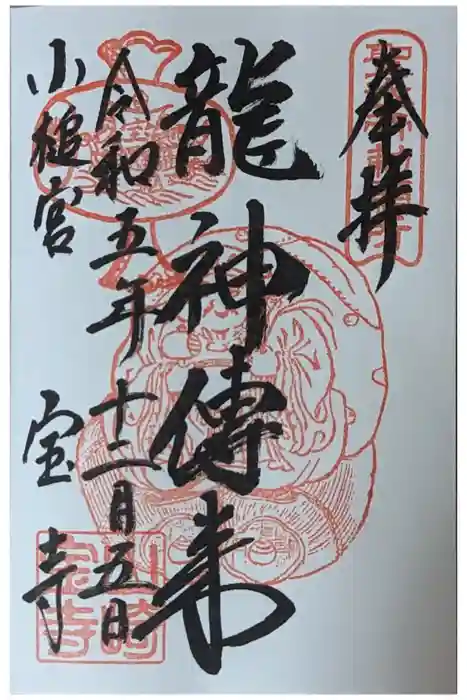 奉拝
龍神傳来
令和五年十二月五日
小槌宮 宝寺